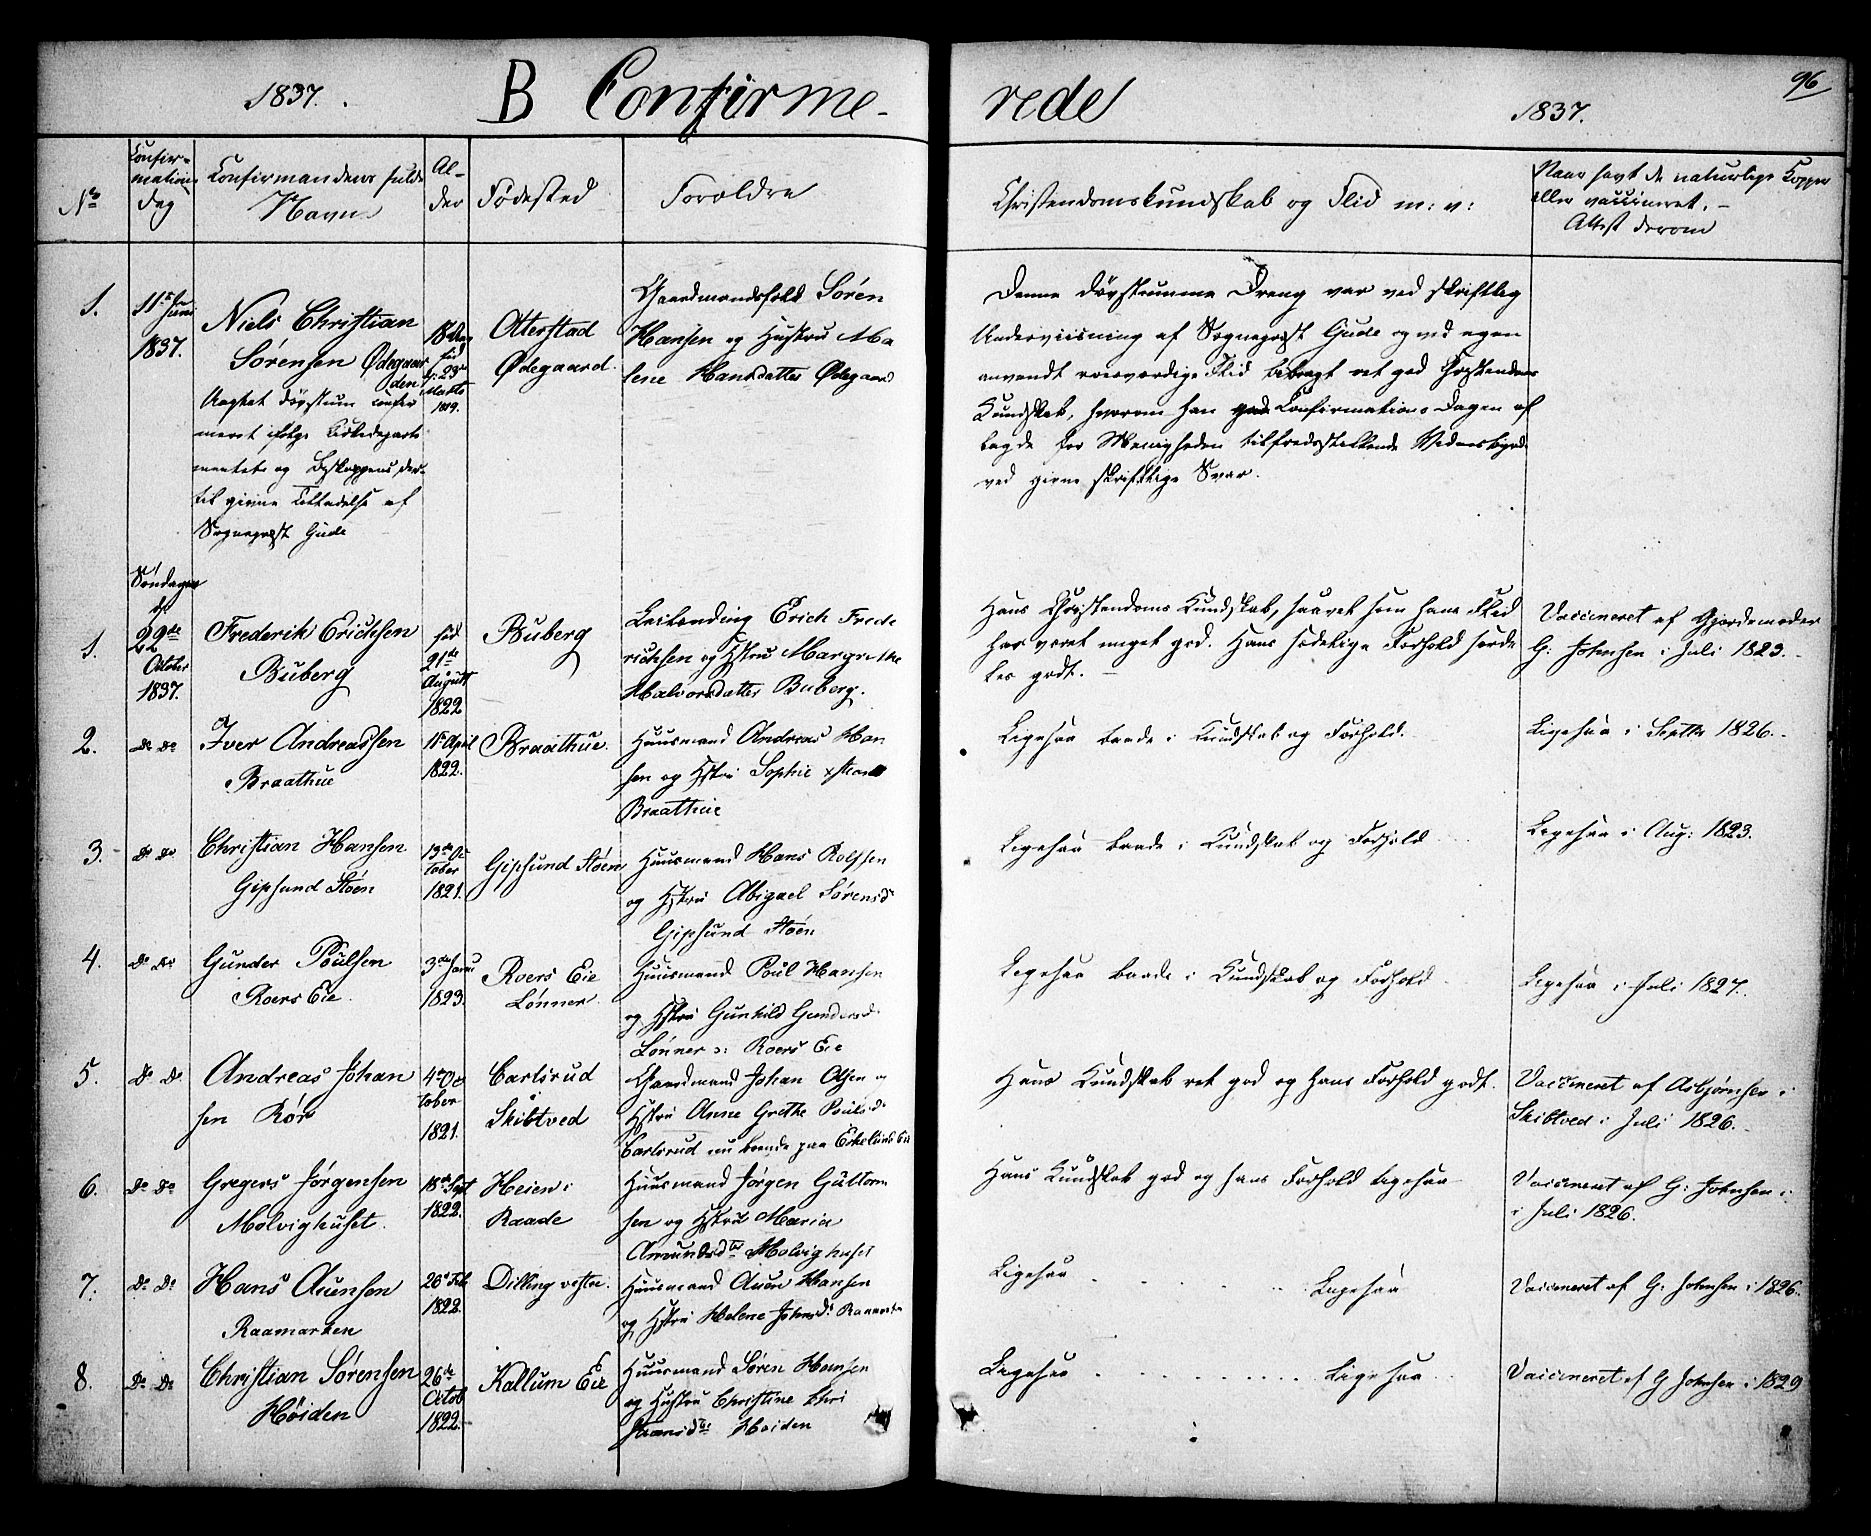 1837. B Confirme-
rede 1837. 96
No
Confir-
mations
Dag
Confirmandens fulde
Navn
Al-
der
Fødested
Forældre
Christendomskundskab og Flid m: v:
Naar havt de naturlige Kopper
eller vaccineret. -
Attest derom
1.
11te Juni
1837.
Niels Christian
Sørensen Ødegaar
den
Uagtet døvstum confir
meret ifølge Kirkedeparte
mentets og Byskoppens der-
til givne Tilladelse af
Sognepræst Gude
18 Aar
fød
d: 23de
Marts
1819.
Otterstad
Ødegaard
Gaardmandsfolk Søren
Hansen og Hustru Ma
lene Hansdatter Ødegaard
Denne døvstumme Dreng var ved skriftlig
Underviisning af Sognepræst Gude og ved egen
anvendt roesværdige Flid bibragt ret god Christendoms
Kundskab, hvorom han Confirmations Dagen af
lagde for Menigheden tilfredsstillende Vidnesbyrd
ved givne skriftlige Svar.
1.
Søndagen
d:
22de
October
1837.
Frederik Erichsen
Buberg
fød
21de
August
1822
Buberg
Leilænding Erich Frede
richsen og Hstru Margrethe
Halvorsdatter Buberg.
Hans Christendoms Kundskab, saavel som hans Flid
har været meget god. Hans sædelige Forhold særde
les godt. -
Vaccineret af Gjordemoder
G: Johnsen i Juli 1823.
2. Do Do
Iver Andreassen
Braathue
11te April
1822.
Braathue.
Huusmand Andreas Han
sen og Hstru Sophie
Braathue
Ligesaa baade i Kundskab og Forhold.
Ligesaa i Septbr 1826.
3. Do Do
Christian Hansen
Gipsund Støen
13de Oc
tober
1821.
Gipsund Støen
Huusmand Hans Rolfsen
og Hstru Abigael Sørensd:
Gipsund Støen
Ligesaa baade i Kundskab og Forhold
Ligesaa i Aug: 1823.
4. Do Do
Gunder Poulsen
Roers Eie
3de Janu
1823.
Roers Eie
Lønner
Huusmand Poul Hansen
og Hstru Gunhild Gundersd:
Lønner o: Roers Eie
Ligesaa baade i Kundskab og Forhold
Ligesaa i Juli 1827.
5. Do Do
Andreas Johan
sen Rør
4de Oc
tober
1821.
Carlsrud
i
Skibtved
Gaardmand Johan Olsen og
Hstru Anne Grethe Poulsd:
Carlsrud nu boende paa Eskelunds Eie
Hans Kundskab ret god og hans Forhold godt.
Vaccineret af Asbjørnsen i
Skibtved i Juli 1826.
6. Do Do
Gregers Jørgensen
Molvighuset.
18de Sept
1822.
Heien i
Raade
Huusmand Jørgen Guttorm
sen og Hstru Maria
Amundsdtr Molvighuset
Hans Kundskab god og hans Forhold ligesaa
Vaccineret af G: Johnsen i
i Juli 1826.
7. Do Do
Hans Auensen
Raamarken
20de Feb
1822.
Dilling vestre.
Huusmand Auen Hansen
og Hstru Helene Johnsd:
Ligesaa Ligesaa
Vaccineret af G: Johnsen i 1826.
8. Do Do
Christian Sørensen
Høiden
26de
Octob
1822.
Kallum Eie
Huusmand Søren Hansen
og Hustru Christine Chri
stiansdtr Høiden
Ligesaa Ligesaa
Vaccineret af G Johnsen i 1829